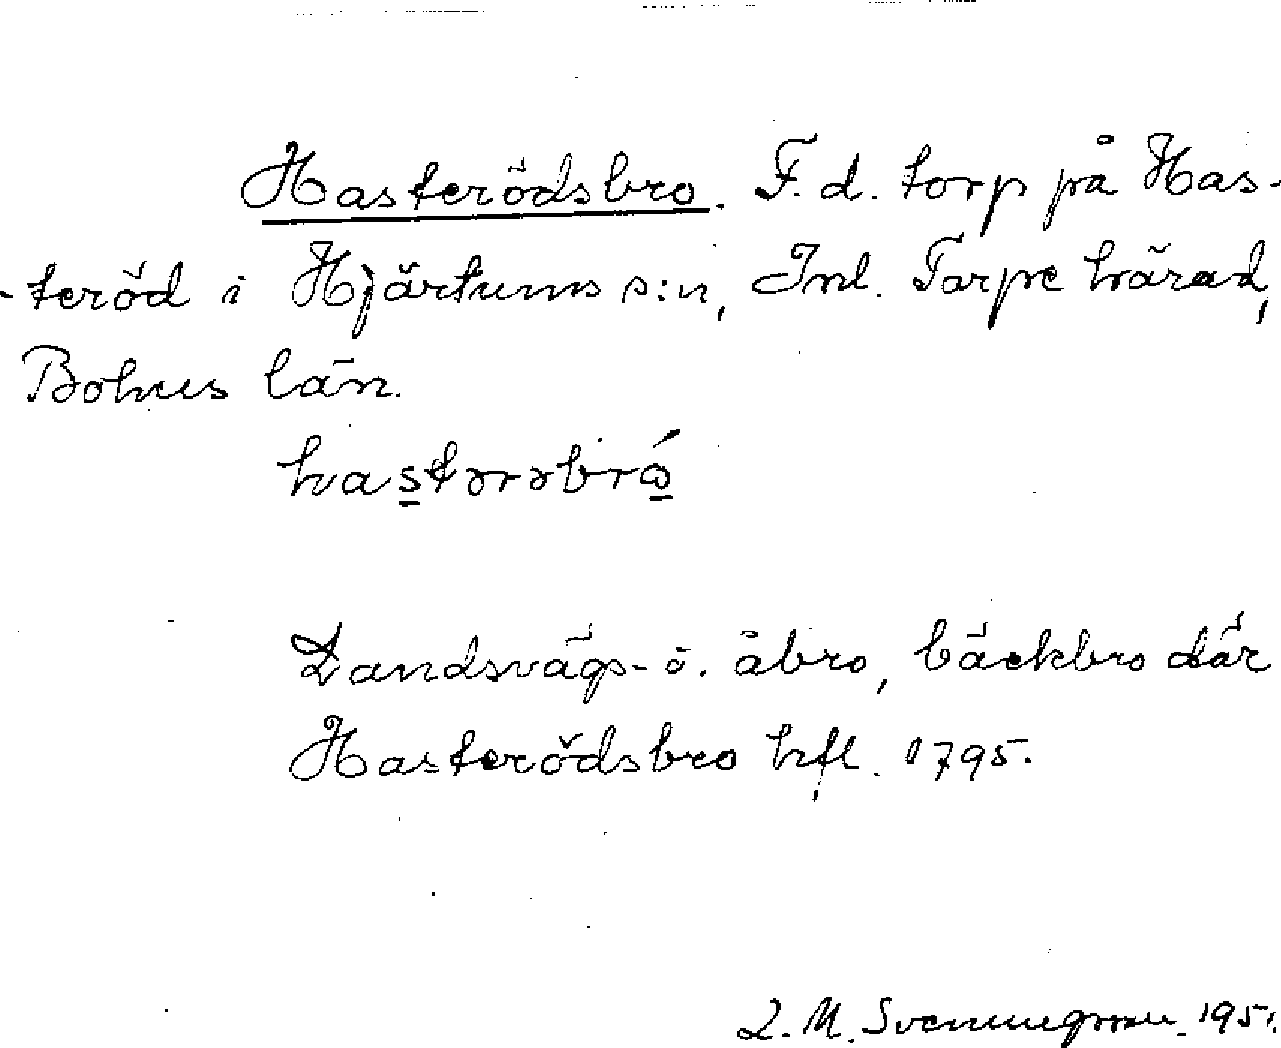 Hasterödsbro. F.d. torp på Has-
-teröd i Hjärtums s:n, Inl. Torpe härad,
Bohus län.
hastərəbró
Landsvägs- o. åbro, bäckbro där
Hasterödsbro hfl. 1795.
L. M. Svenungsson. 1951.